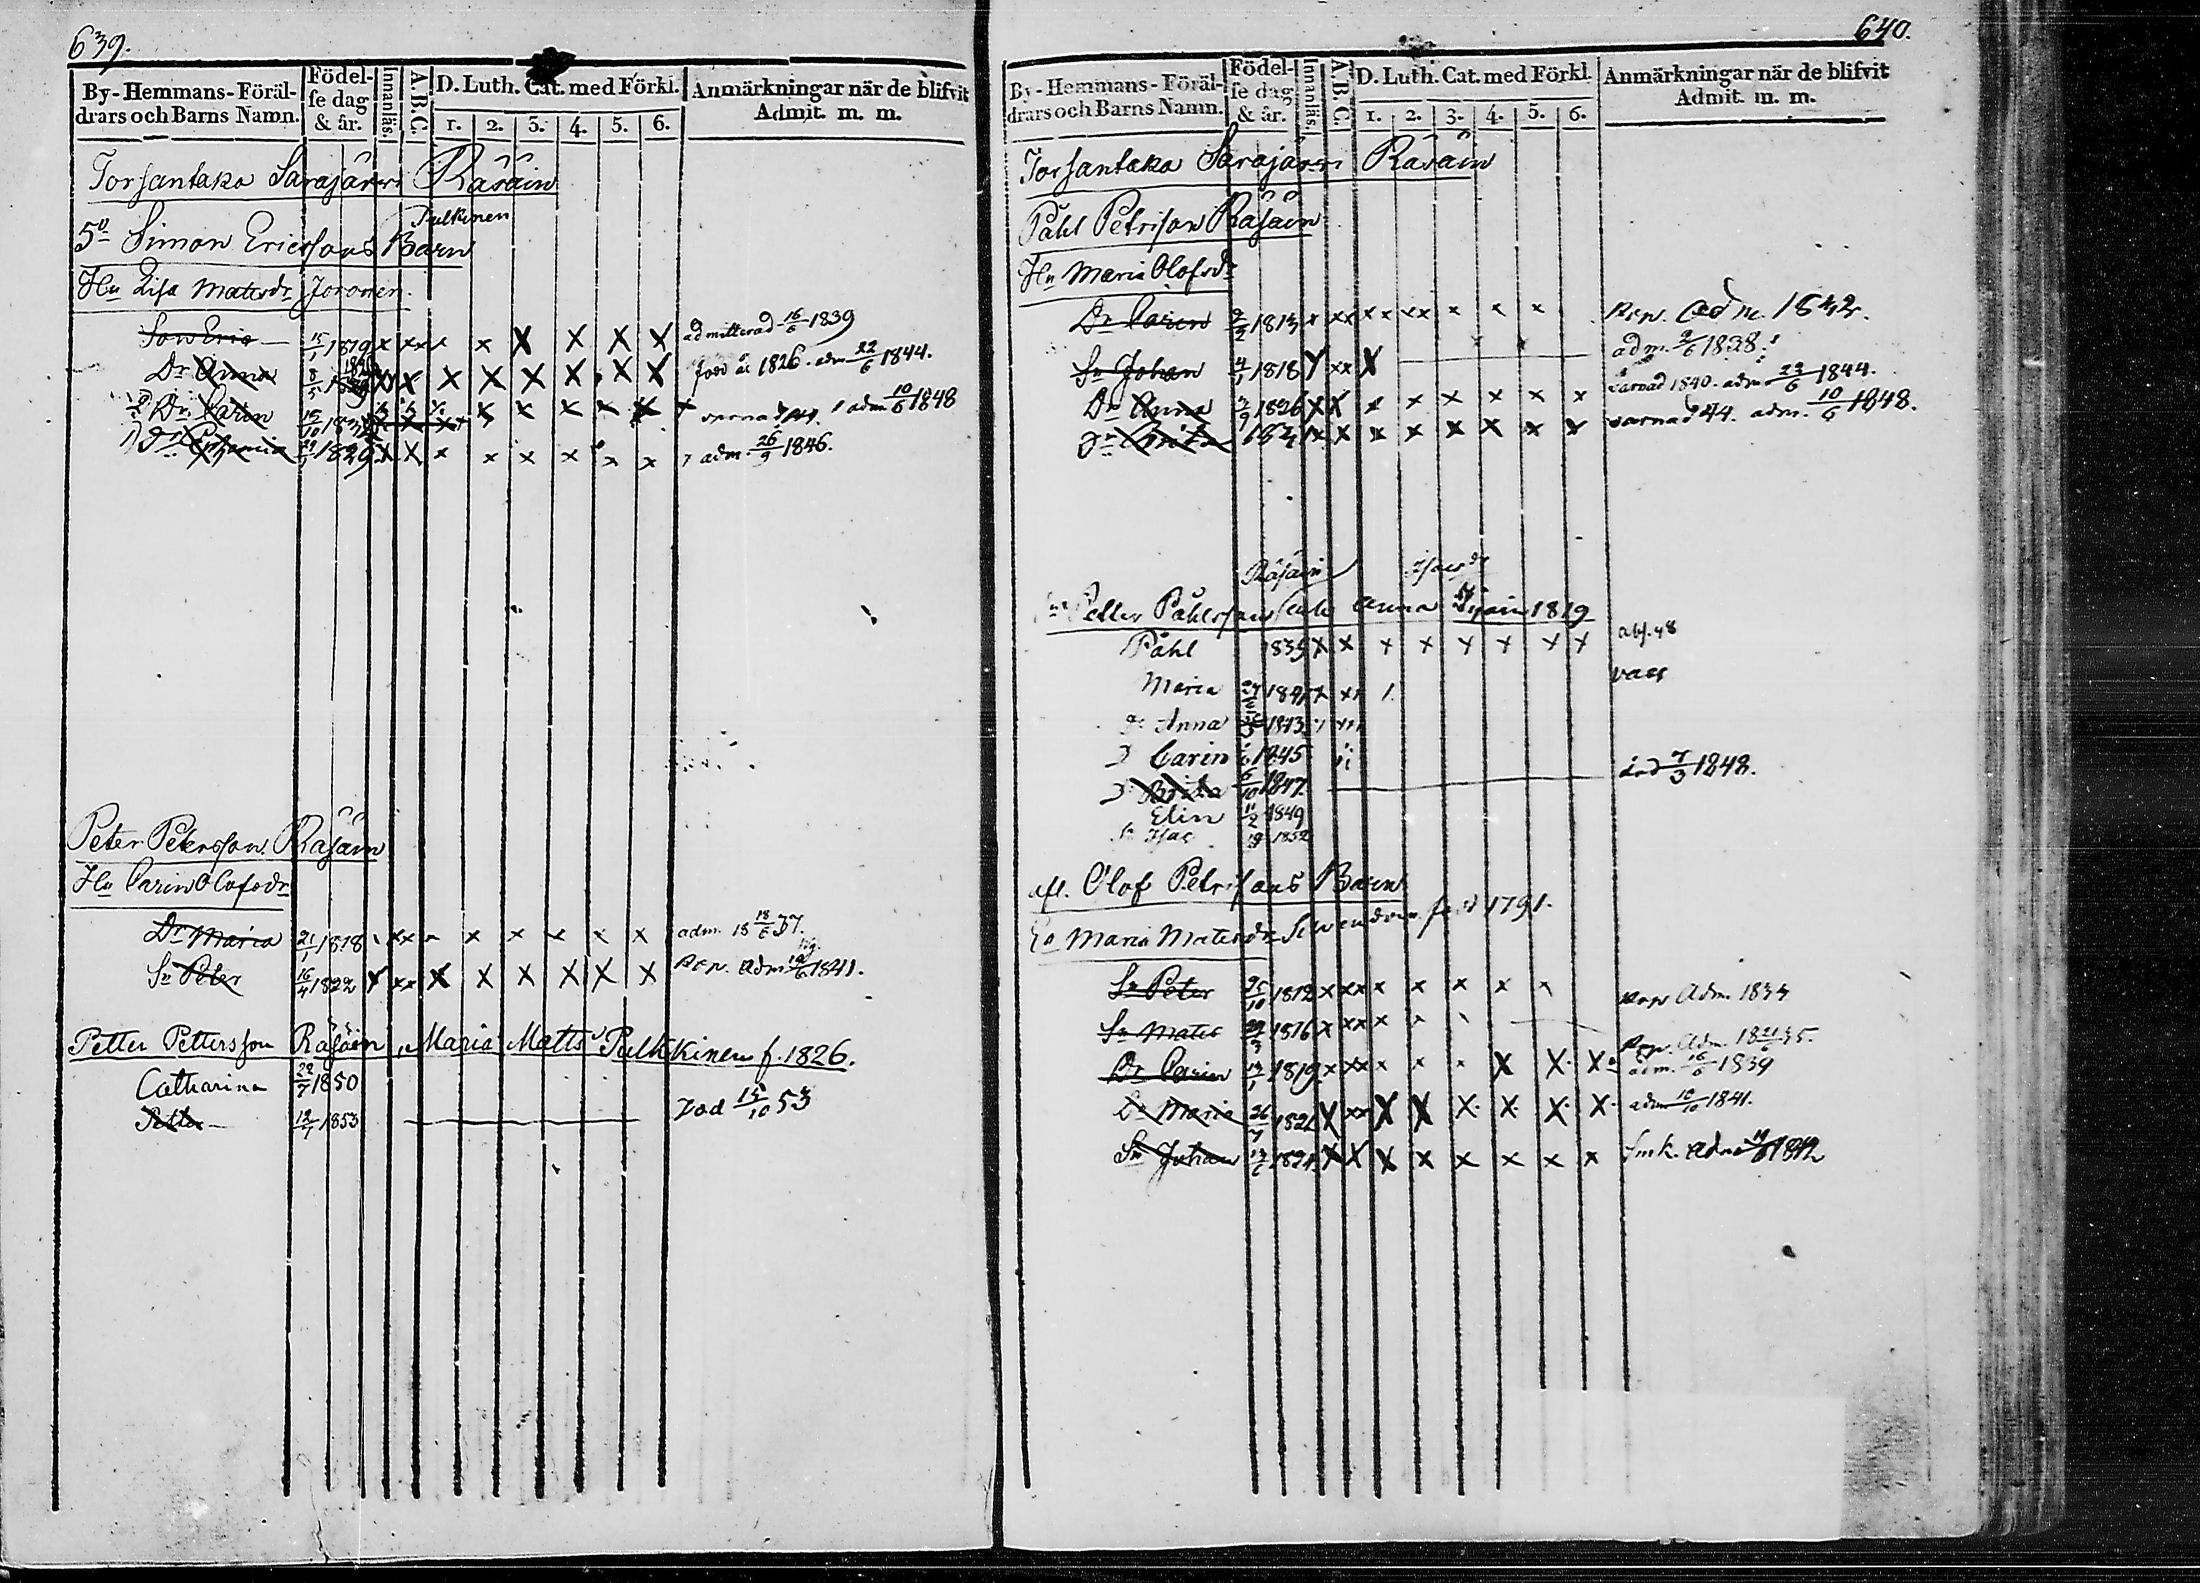 639.
By-Hemmans-Föräl-
drars och Barns Namn.
Födel-
se dag
& år.
Innanläs.
A.B.C.
D. Luth. Cat. med Förkl.
1. 2. 3. 4. 5. 6.
Anmärkningar när de blifvit
Admit. m. m.
Torsantaka Sarajärvi Räsäin
Pulkinen
5o Simon Ericssons Barn
Hu Lisa Matsdr Joronen.
Son Eric 15/1 1819 x xxx x X X X X admitterad 16/6 1839
Dr Anna 8/5 X X X X X X X X född år 1826. adm 22/6 1844.
Dr Carin 15/10 varnad adm 10/6 1848
1829 X X x x x x x x adm. 26/9 1846.
Peter Petersson Räsäin
Hu Carin Olofsdr
Dr Maria 21/1 1818 xx x x x x x adm. 18 18/6 37.
Sn Peter 16/4 1822 X xx X X X X X X Rep. adm 1841.
Petter Pettersson Räsäin, Maria Matts Pulkkinen f. 1826.
Catharina 22/7 1850
Petter 12/7 1853 död 15/10 53
640.
By-Hemmans-Föräl-
drars och Barns Namn.
Födel-
se dag
& år.
Innanläs.
A.B.C.
D. Luth. Cat. med Förkl.
1. 2. 3. 4. 5. 6.
Anmärkningar när de blifvit
Admit. m. m.
Torsantaka Sarajärvi Räsäin
Påhl Petrisson Räsäin
Hu Maria Olofsdr
Dr Carin 2/2 1813 x xx xx xx x x x Rep. adm. 1832.
Sn Johan 4/1 1818 xx X adm. 1838
Dr Anna 1826 X X x x x x x x varnad 1840. adm 1844.
Dr x x x x X x x varnad 44. adm. 10/6 1848.
Räsäin Isacsdr
Petter Påhlsson Anna 1819
Påhl 1839 X x x x x x x x abs. 48
Maria xx 1. vacc
Anna 1843
D Carin 1845
D Brita 6/10 1847 död 7/3 1848.
Elin 11/2 1849
Sn Isac 1852
afl. Olof Petrissons Barn
Ea Maria Matsdr född 1791.
Sn Peter 25/10 1812 x xxx x x x x Rep Adm.
Sn Mats 1816 x xxx x Rep. Adm.
Dr Carin 1819 x xxx x x x X X X adm. 16/6 1839
Dr Maria 26/7 1821 X xx X X X X X X adm 10/10 1841.
Sn Johan X X X x x x x x